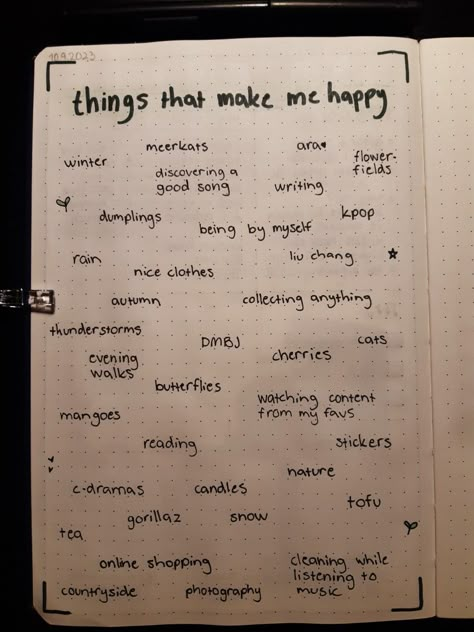 10.9.2023
things that make me happy
meerkats
ara♥
winter
flower-
fields
discovering a
good song
writing
dumplings
kpop
being by myself
rain
liu chang
nice clothes
autumn
collecting anything
thunderstorms
DMBJ
cats
evening
walks
cherries
butterflies
watching content
from my favs
mangoes
reading
stickers
nature
c-dramas
candles
tofu
gorillaz
snow
tea
online shopping
cleaning while
listening to
music
countryside
photography